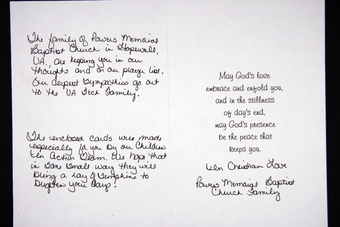 The family of Powers Memorial
Baptist Church in Hopewell,
VA. are keeping you in our
thoughts and on our prayer list.
Our deepest sympathies go out
to the VA Tech Family.
The enclosed cards were made
especially for you by our Children
In Action Team. We hope that
in some small way they will
bring a ray of sunshine to
brighten your day!
May God's love
embrace and enfold you,
and in the stillness
of day's end,
may God's presence
be the peace that
keeps you.
In Christian Love
Powers Memorial Baptist
Church Family